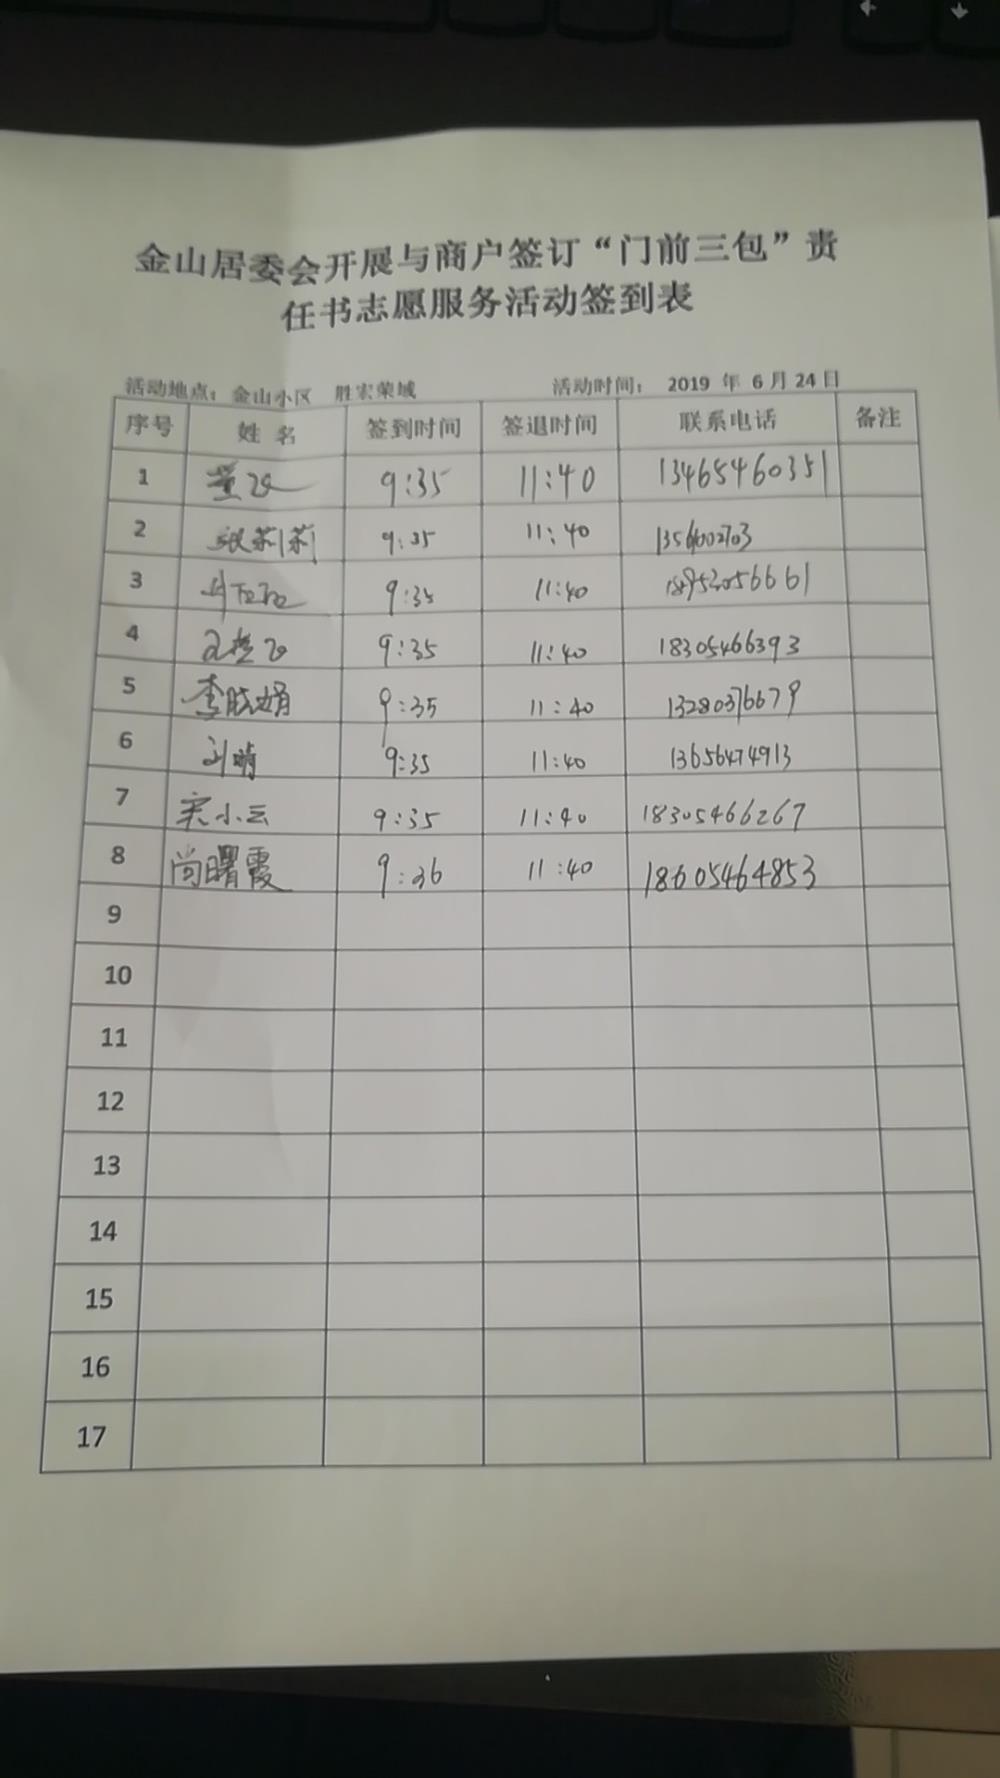 金山居委会开展与商户签订“门前三包”责
任书志愿服务活动签到表
活动地点：金山小区 胜宏荣域 活动时间： 2019 年 6 月 24 日
序号 姓 名 签到时间 签退时间 联系电话 备注
1 9:35 11:40 13465460351
2 张莉莉 9:35 11:40
3 9:35 11:40
4 9:35 11:40 18305466393
5 李晓娟 9:35 11:40 13280376679
6 刘晴 9:35 11:40 13656474913
7 宋小云 9:35 11:40 18305466267
8 尚曙霞 9:36 11:40 18605464853
9
10
11
12
13
14
15
16
17